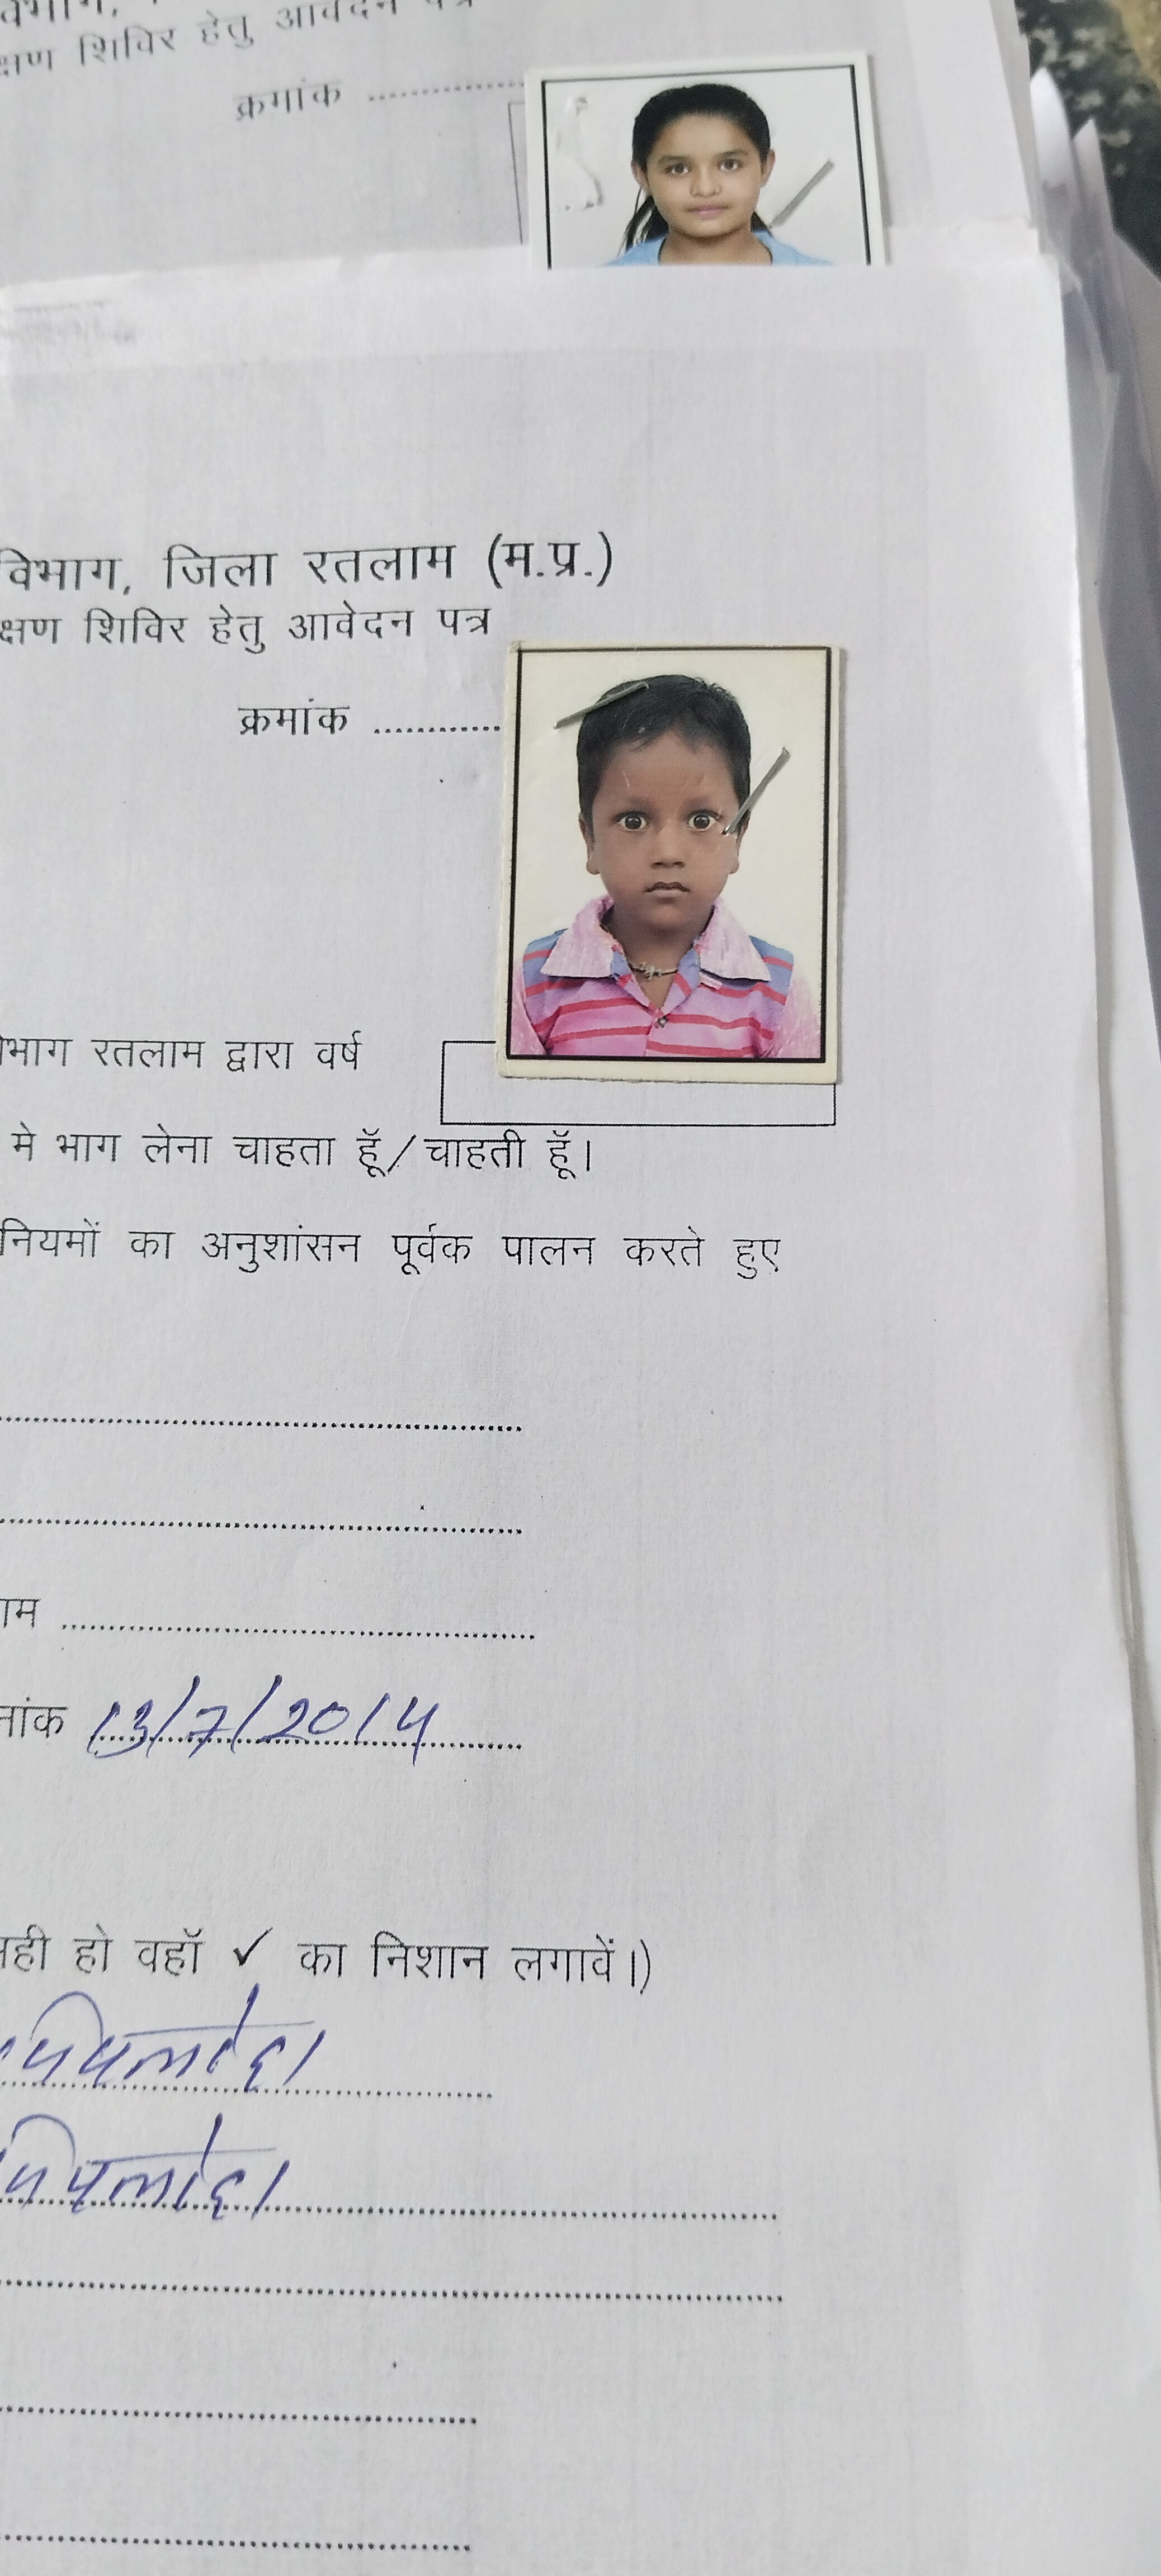 क्षण शिविर हेतु आवेदन पत्र
क्रमांक ..............
विभाग, जिला रतलाम (म.प्र.)
क्षण शिविर हेतु आवेदन पत्र
क्रमांक ............
भाग रतलाम द्वारा वर्ष
मे भाग लेना चाहता हूॅ/चाहती हूॅ।
नियमों का अनुशांसन पूर्वक पालन करते हुए
ाम ..............................
नांक 13/7/2014
ही हो वहॉ ✓ का निशान लगावें।)
पिपलोदा
पिपलोदा